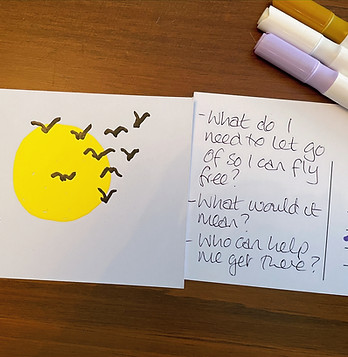 - What do I
need to let go
of so I can fly
free?
- What would it
mean?
- Who can help
me get there?